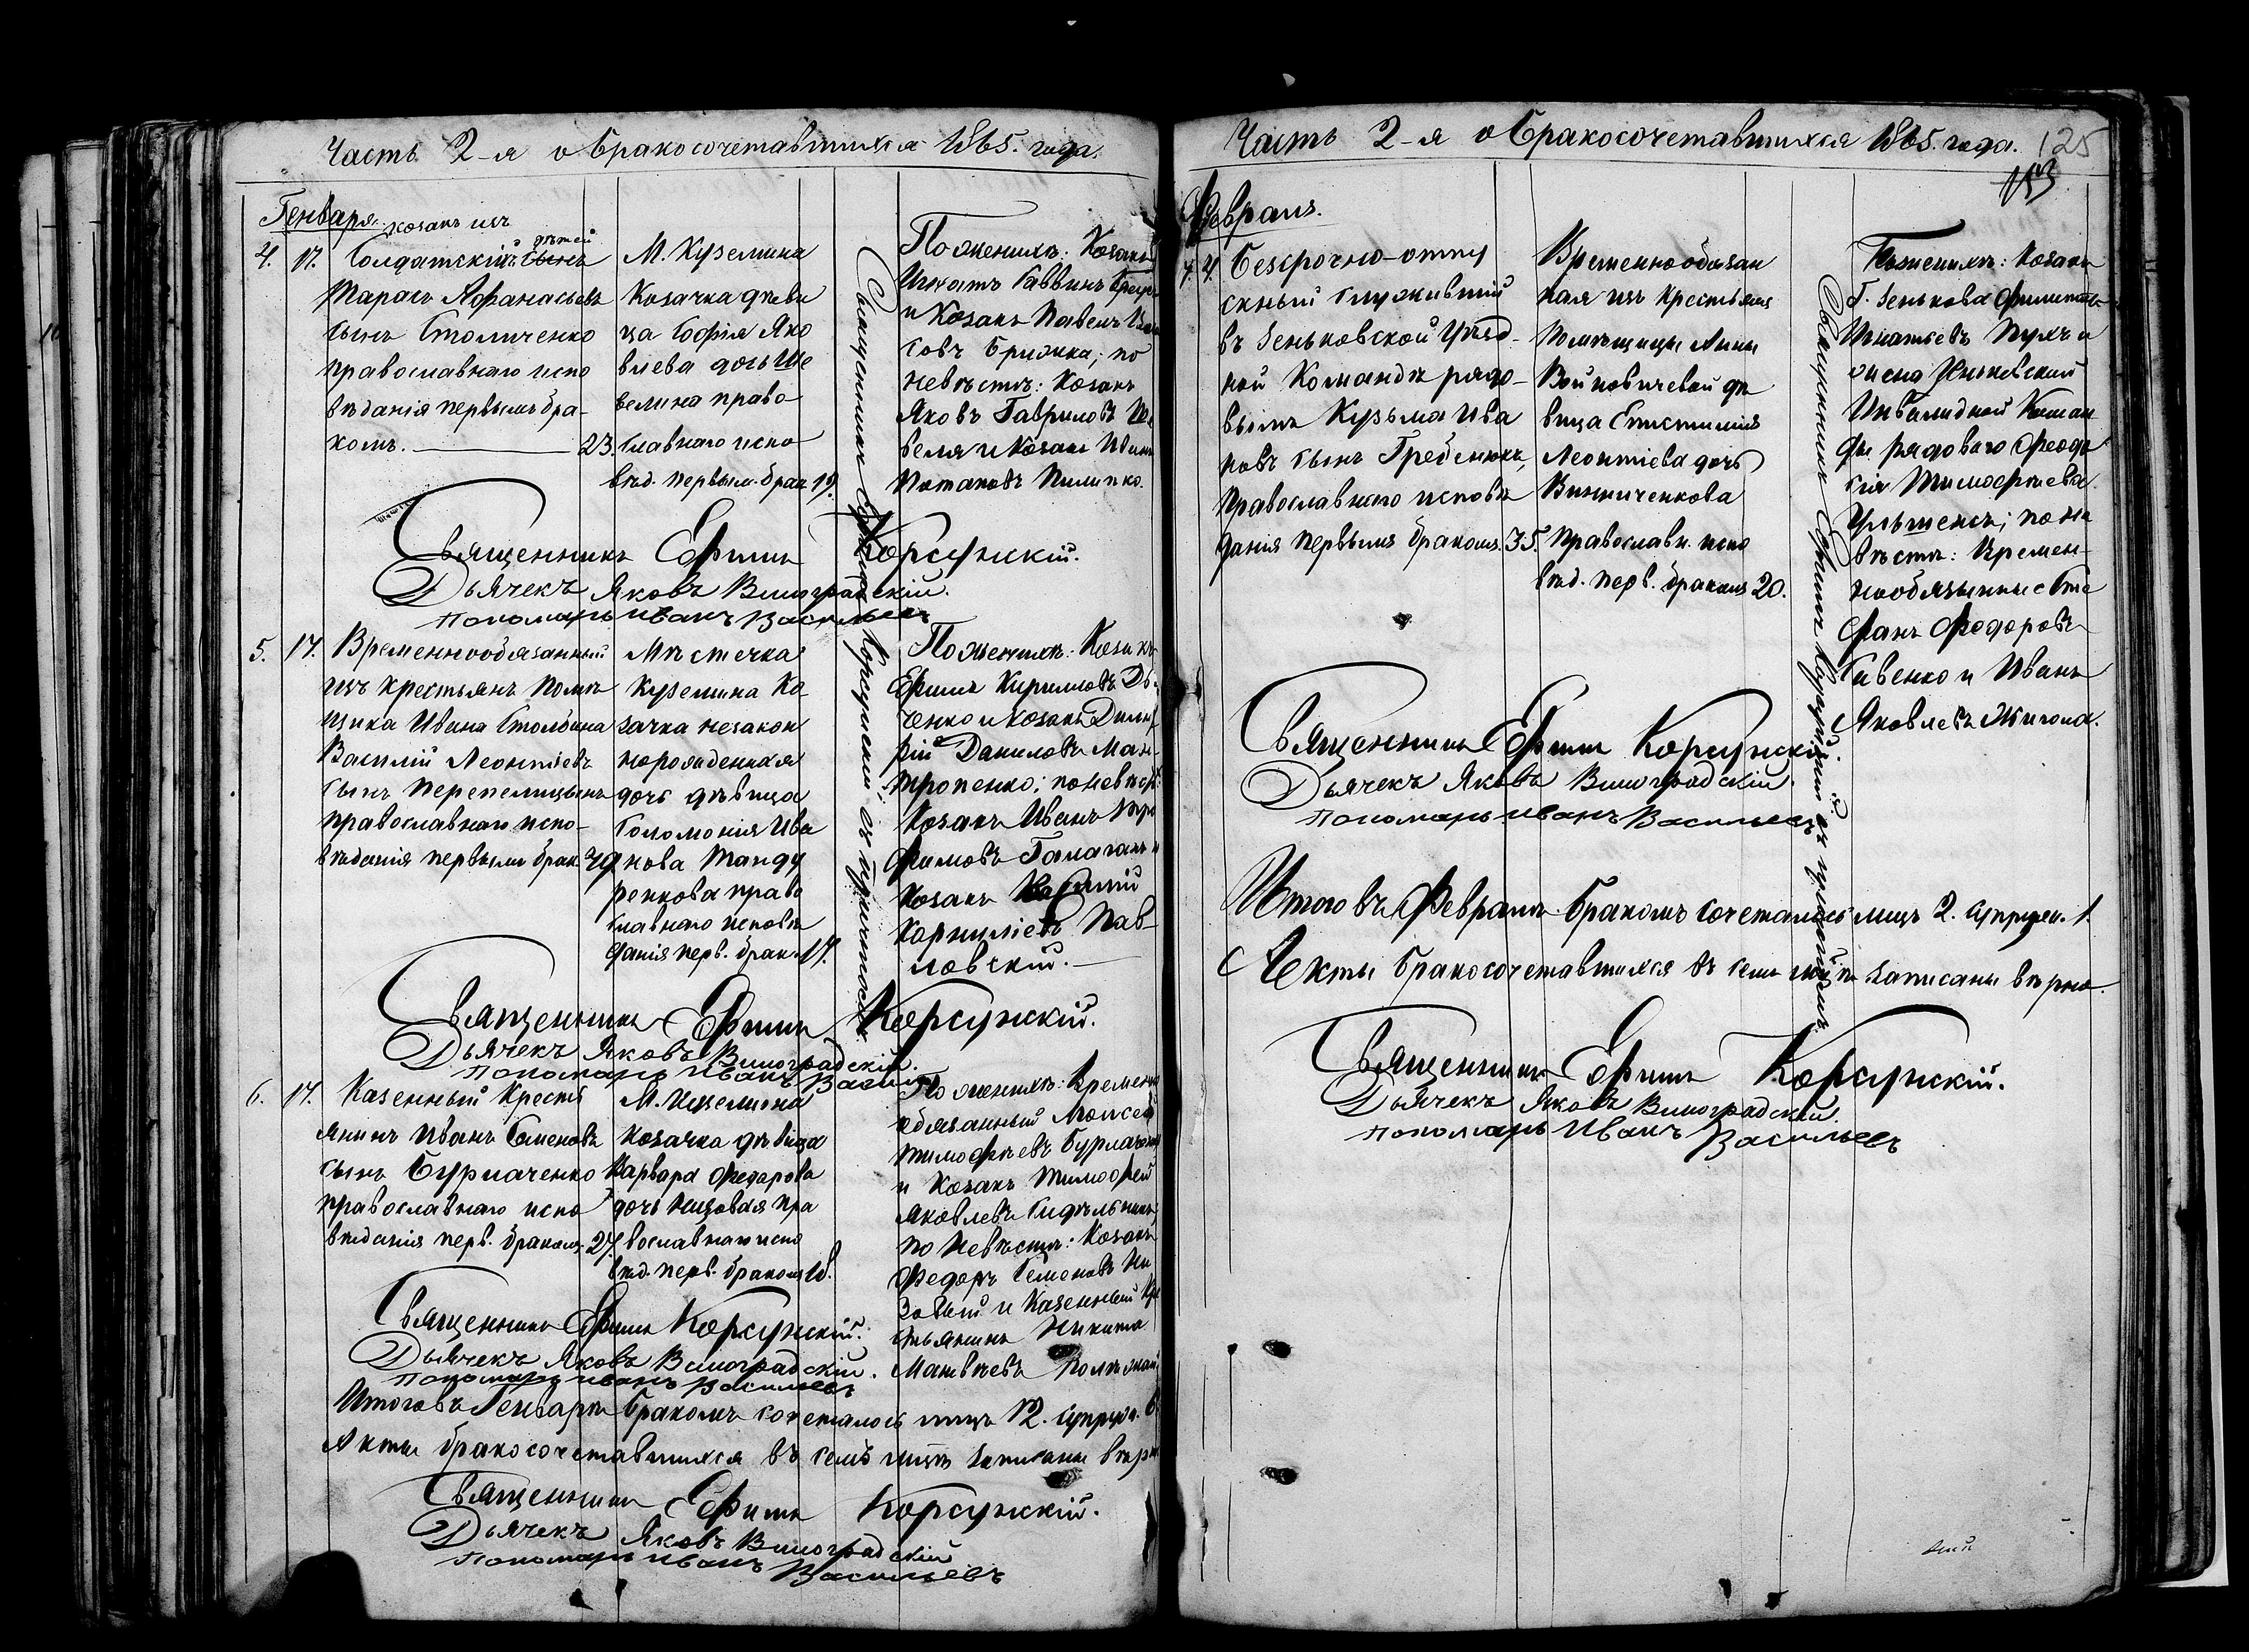 Часть 2-я о бракосочетавшихся 1865. года.
Генваря.
козакъ изъ
4. 17. Солдатскихъ дѣтей
Тарасъ Афанасьевъ
сынъ Столиченко
православнаго испо
вѣданія первымъ бра-
комъ. 23.
М. Куземина
Козачка дѣви
ца Софія Яко
влева дочь Ше
велина право
славнаго испо
вѣд. первым. брак 19.
По женихѣ: Козакъ
Игнатъ Саввинъ
и Козакъ Павелъ
совъ Брижка; по
невѣстѣ: Козакъ
Яковъ Гавриловъ Ше
веля и Козакъ Иванъ
Потаповъ Пилипко.
Священникъ Ефимъ Корсунскій.
Дьячекъ Яковъ Виноградскій.
Пономарь Иванъ Васильевъ
5. 17. Временнообязанный
изъ крестьянъ помѣ
щика Ивана Столбина
Василій Леонтіевъ
сынъ Перепелицынъ
православнаго испо-
вѣданія первымъ брак.
Мѣстечка
Куземина Ко
зачка незакон
норожденная
дочь дѣвица
Соломонія Ива
нова Танду
ренкова право
славнаго исповѣ
данія перв. брак. 17.
По женихѣ: Козакъ
Ефимъ Кириловъ
ченко и Козакъ Димит
рій Даниловъ Ман-
тропенко; по невѣстѣ:
Козакъ Иванъ Тро
фимовъ Галаганъ и
Козакъ Василій
Корниліевъ Пав-
ловскій.
Священникъ Ефимъ Корсунскій.
Дьячекъ Яковъ Виноградскій.
Пономарь Иванъ Васильевъ
6. 17. Казенный Кресть
янинъ Иванъ Семеновъ
сынъ Бурлаченко
православнаго испо
вѣданія перв. бракомъ. 27.
М. Куземина
Козачка дѣвица
Варвара Федорова
дочь Низовая пра
вославнаго испо
вѣд. перв. бракомъ 18.
По женихѣ: Временно
обязанный Моисей
Тимофѣевъ Бурлаченко
и Козакъ Тимофей
Яковлевъ Сидѣльникъ;
по невѣстѣ: Козакъ
Федоръ Семеновъ Ни
зовый и Казенный Кре
стьянинъ Никита
Матвѣевъ
Священникъ Ефимъ Корсунскій.
Дьячекъ Яковъ Виноградскій.
Пономарь Иванъ Васильевъ
Итого въ Генварѣ бракомъ сочеталось лицъ 12. супруж. 6.
Акты бракосочетавшихся въ семъ мѣсяцѣ записаны вѣрно
Священникъ Ефимъ Корсунскій.
Дьячекъ Яковъ Виноградскій
Пономарь Иванъ Васильевъ
Священникъ Ефимъ Корсунскій съ причтомъ.
Часть 2-я о бракосочетавшихся 1865. года. 125
Февраля.
4. Безсрочно-отпу
скный служившій
въ Зеньковской Уѣзд-
ной Командѣ рядо-
вымъ Кузьма Ива
новъ сынъ Гребенюкъ,
православнаго исповѣ
данія первымъ бракомъ. 35.
Временнообязан
ная изъ крестьянъ
помѣщицы Анны
Войновичевой дѣ
вица Епистимія
Леонтіева дочь
Винниченкова
православн. испо
вѣд. перв. бракомъ 20.
По женихѣ: Козакъ
Г. Зенькова Филиппъ
Игнатьевъ Пухъ и
Инвалидной Коман
ды рядоваго
Тимофѣева
по не
вѣстѣ: Времен-
нообязанные Сте
фанъ Федоровъ
Савенко и Иванъ
Яковлевъ Жигола.
Священникъ Ефимъ Корсунскій.
Дьячекъ Яковъ Виноградскій.
Пономарь Иванъ Васильевъ
Итого въ Февралѣ бракомъ сочеталось лицъ 2. супруж. 1.
Акты бракосочетавшихся въ семъ мѣсяцѣ записаны вѣрно.
Священникъ Ефимъ Корсунскій.
Дьячекъ Яковъ Виноградскій.
Пономарь Иванъ Васильевъ
Священникъ Ефимъ Корсунскій съ причтомъ.